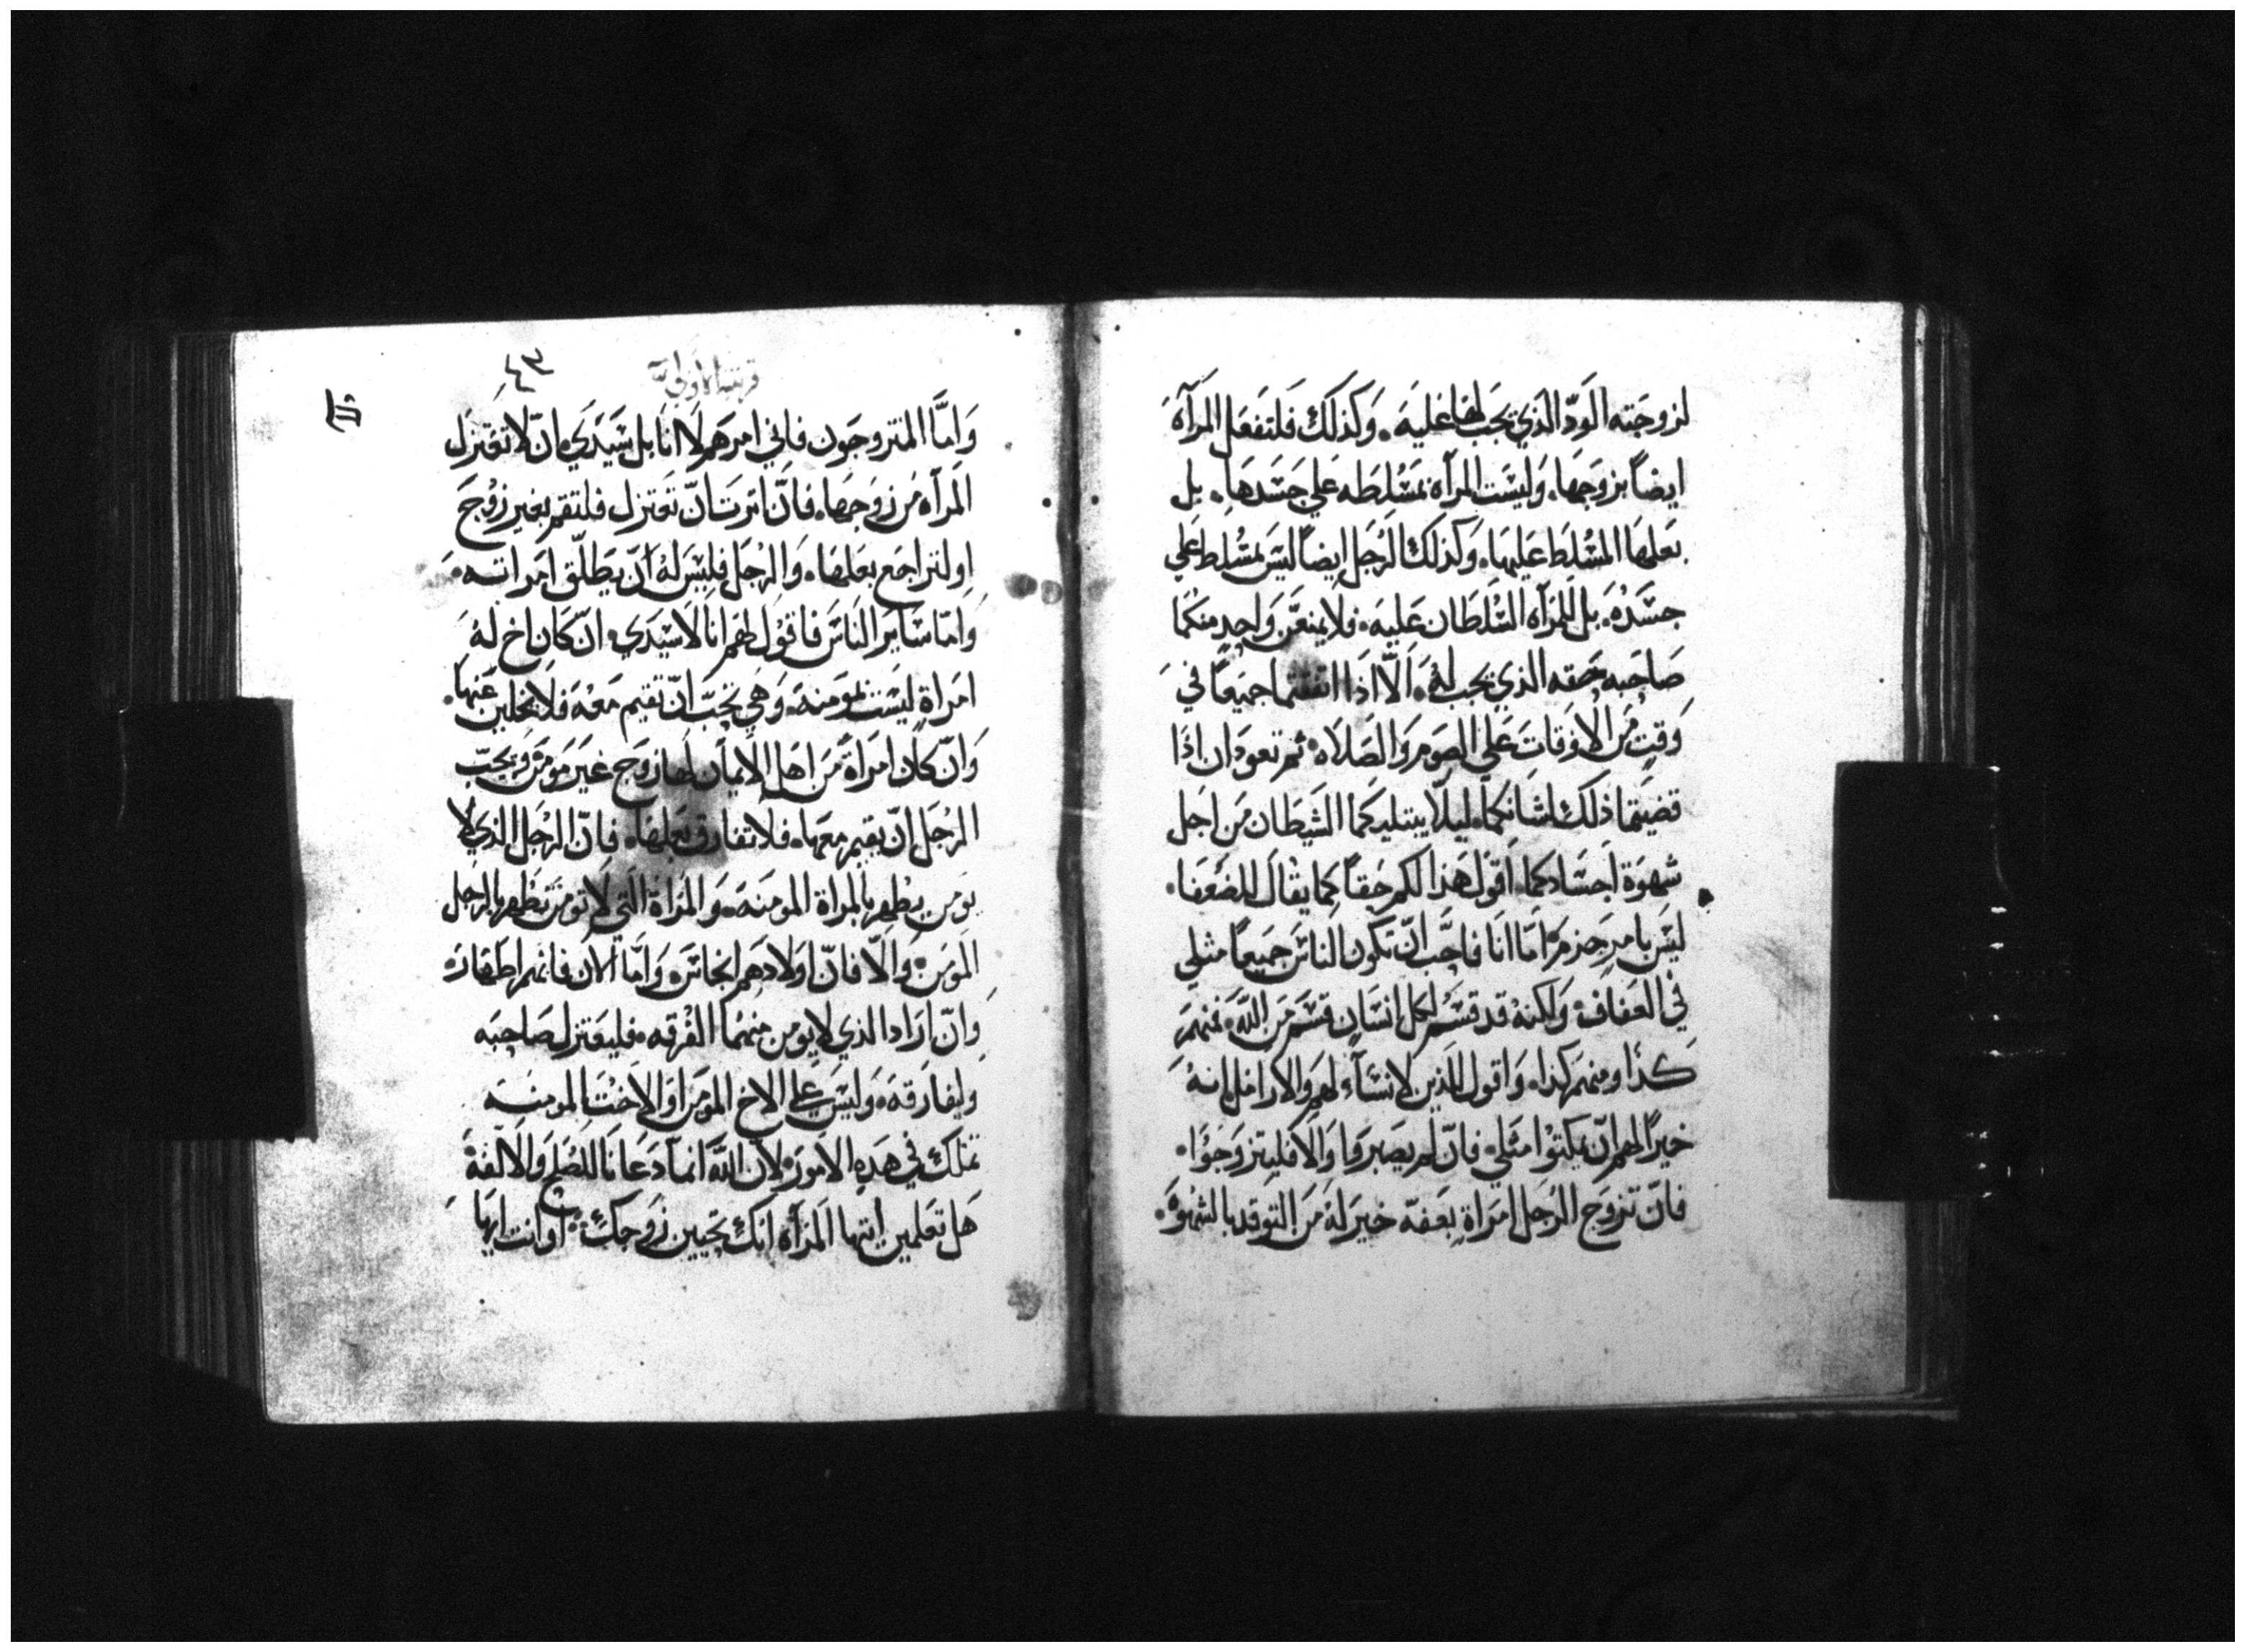 لزوجَته الوَدّ الذي يجَب لهَا عَليَه. وَكذلَكَ فَلتفعَل المَرآه
ايضاً بزوجَهَا. وَليسَت المرآه بمَسْلطَه عَلي جَسَدهَا. بل
بَعلهَا المسْلِطَ عَليهَا. وَكذلكَ الرُجل ايضاً ليسَ بمسْلطِ عَلي
جسَدُه. بل للمَرآه السُلطَان عَليَه. فلا يمنعَنّ وَاحِد منكمَا
صَاحبه حَقه الذي يجب لهُ. اَلّا اذَا اتفقتما جميَعاً في
وَقتٍ مَن الاوَقات عَلي الصَوم وَالصَلاَه. ثم تعودَان اذَا
قضيَتما ذلكَ لشانكما. ليلّا يبتليَكما الشيَطان مَن اجَل
شهوَة اجَسَادكما. اَقوَل هَذا لكم حَقاً كما يقال للضعَفا.
ليسَ بامر جزم. امَا انَا فاحَب انّ تكون الناسَ جميعاً مثلي
في العَفاف. وَلكنهُ قد قسْم لكل انسَان قسَم مَن اللّه. فمنهمَ
كذَا ومنهم كهذا. وَاقول للذين لا نسَآء لهم وَالارَامل انهُ
خيراً لهم انّ يمكثوُا مثَلي. فانّ لم يصَبروَا وَالّا فليتزوَجوُا.
فانّ تزوَج الرُجل امرَاةٍ بعَفة خيَر لهُ مَن التوقد بالشهوَه.
قرنتيه الاولي
٤٣
وَامَّا المتزوجَون فاني امرهَم لَا انَا بل سَيَدَي. انّ لا تعَتزل
المَرآه مَن زوَجهَا. فانّ اثرتَ انّ تعَتزل فلتقم بغير زوْج
او لتراجَع بعَلهَا. وَالرُجَل فليسَ لهُ انّ يَطلّق امَراتَه.
وَامّا سَايَر النَاسَ فاقوْل لهَم انا لا سَيَدي. انّ كَان اخ لهُ
امَراة ليسَت بموَمنهَ. وَهي تحَبّ انّ تقيم مَعهَ فلا يخلين عَنهَا.
وَانّ كاَن امرَاة مَن اهَل الايمَان لهَا زوَج غيَر موَمَن. وَيحَبّ
الرُجَل انّ يقيم معهَا. فلا تفارق بعَلهَا. فانّ الرُجَل الذي لا
يوَمن يطْهر بالمراة الموَمنَه. وَالمَراة التي لا توَمنَ تطْهر بالرُجل
الموَمن. وَالّا فانّ اوَلادهَم انجَاسَ. وَامَّا الاَن فانهم اطهَار.
وَانّ ارَادَا الذي لا يوَمن منهمَا الفُرقه. فليَعَتزل صَاحبَه
وليفارَقهَ. وَليسَ عَلي الاخ الموَمن اوَ الاخَت الموَمنه
تملك في هَذه الامورَ. لانّ اللّه انمَا دَعَانا للصُلح وَالالفة
هَل تعَلمين ايتها المَرآه انكَ تحَيين زوَجكَ. اوَ انت ايهَا